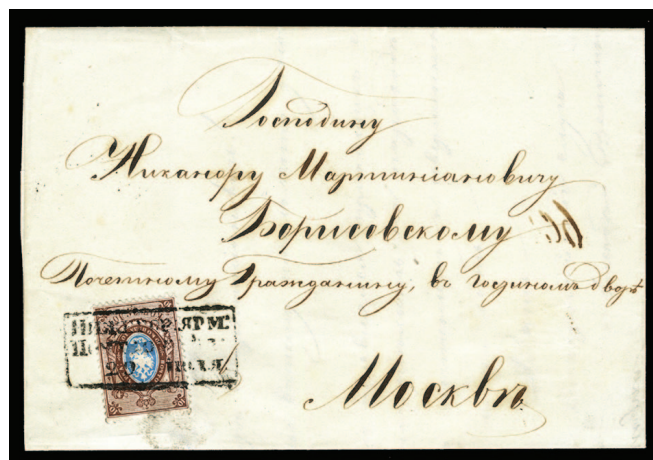 Господину
Никанору Мартиніановичу
Борисовскому
Почетному Гражданину, въ гостиномъ дворѣ
ЯРМ:
20 ІЮЛЯ
Москвѣ